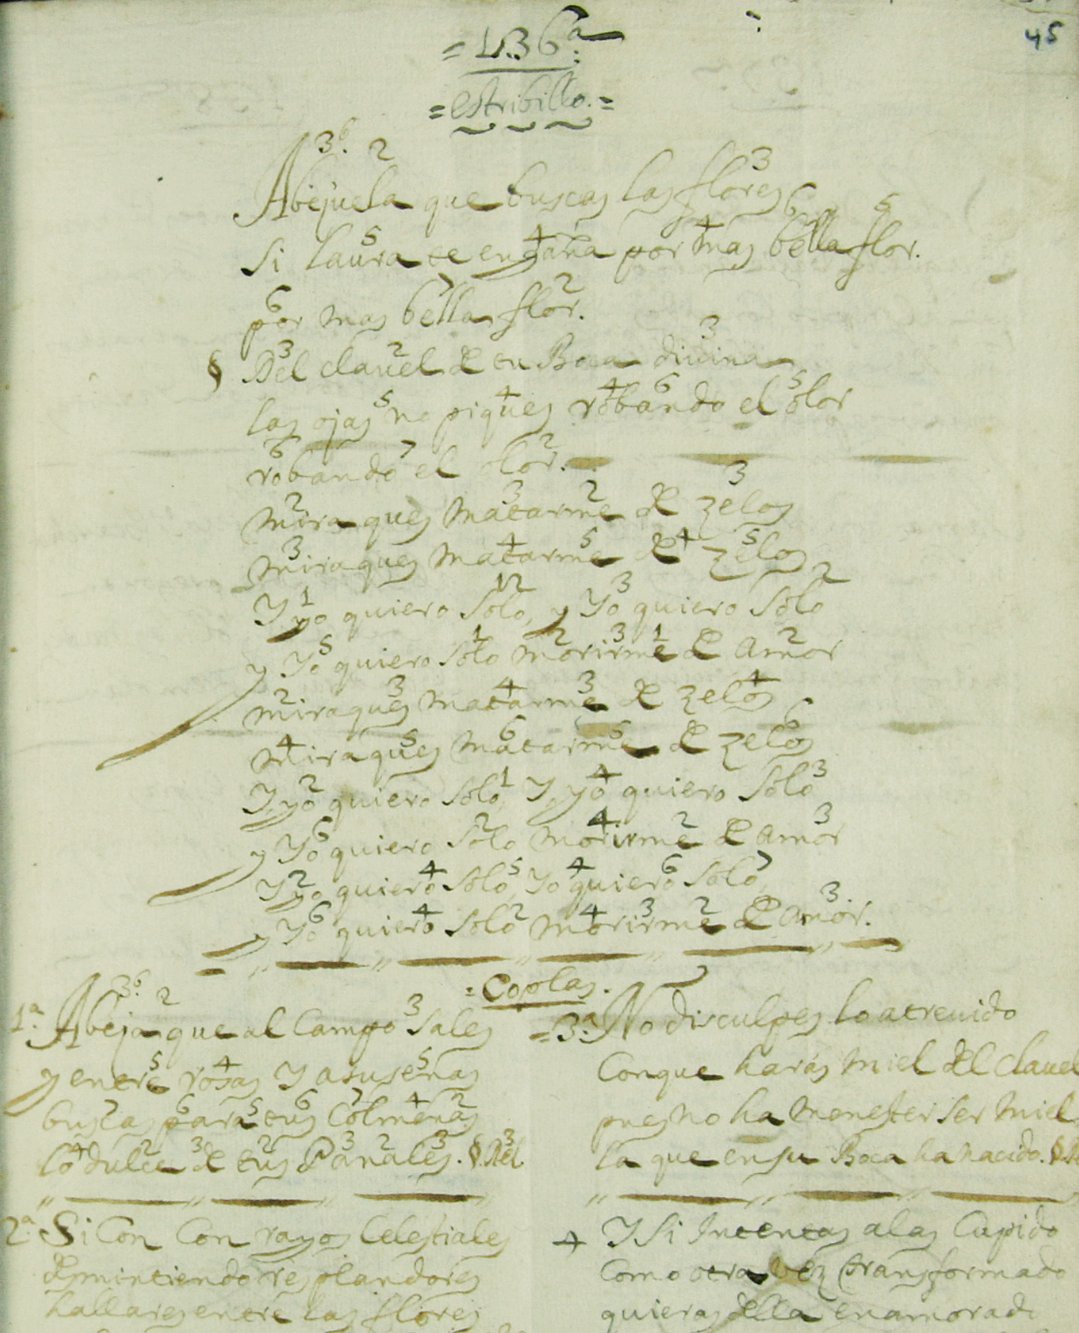 45
= 136ª =
= estribillo. =
3 6. 2 3
Abejuela que buscas las flores
5 4 4 6 7 5
si laura te engaña por mas bella flor.
6 7 2
por mas bella flor.
3 2 3
§ Del clauel de tu Boca diuina
5 4 4 6 5
las ojas no piques robando el olor
6 7 2
robando el olor.
2 3 2 3
mira ques matarme de zelos
3 4 5 4 5
mira ques matarme de zelos
1 12 3 2
Y yo quiero solo, y Yo quiero solo
5 1 2 3 1 2
y Yo quiero solo morirme de amor
2 3 4 3 4
mira ques matarme de zelos
4 5 6 5 6
mira ques matarme de zelos
2 1 4 3
Y yo quiero solo, Y yo quiero solo
6 2 4 2 3
y Yo quiero solo morirme de amor
2 4 5 4 6 7
Y yo quiero solo, Yo quiero solo,
6 4 2 4 3 2 3
y Yo quiero solo morirme de amor.
= Coplas.
3 6. 2 3
1ª. Abeja que al campo sales
5 4 5
y entre rosas y asusenas
7 6 5 6 7 4 2
buscas para tus colmenas
4 2 3 2 3 2 3 3
lo dulce de tus Panales. § Del
2ª. Si Con Con rayos Celestiales
desmintiendo resplandores
hallares entre las flores
= 3ª. No disculpes lo atreuido
Conque harás miel del clauel
pues no ha menester ser miel
la que en su Boca ha nacido. §
4 Y Si Intentas alas Cupido
Como otra vez transformado
quieras della enamorado